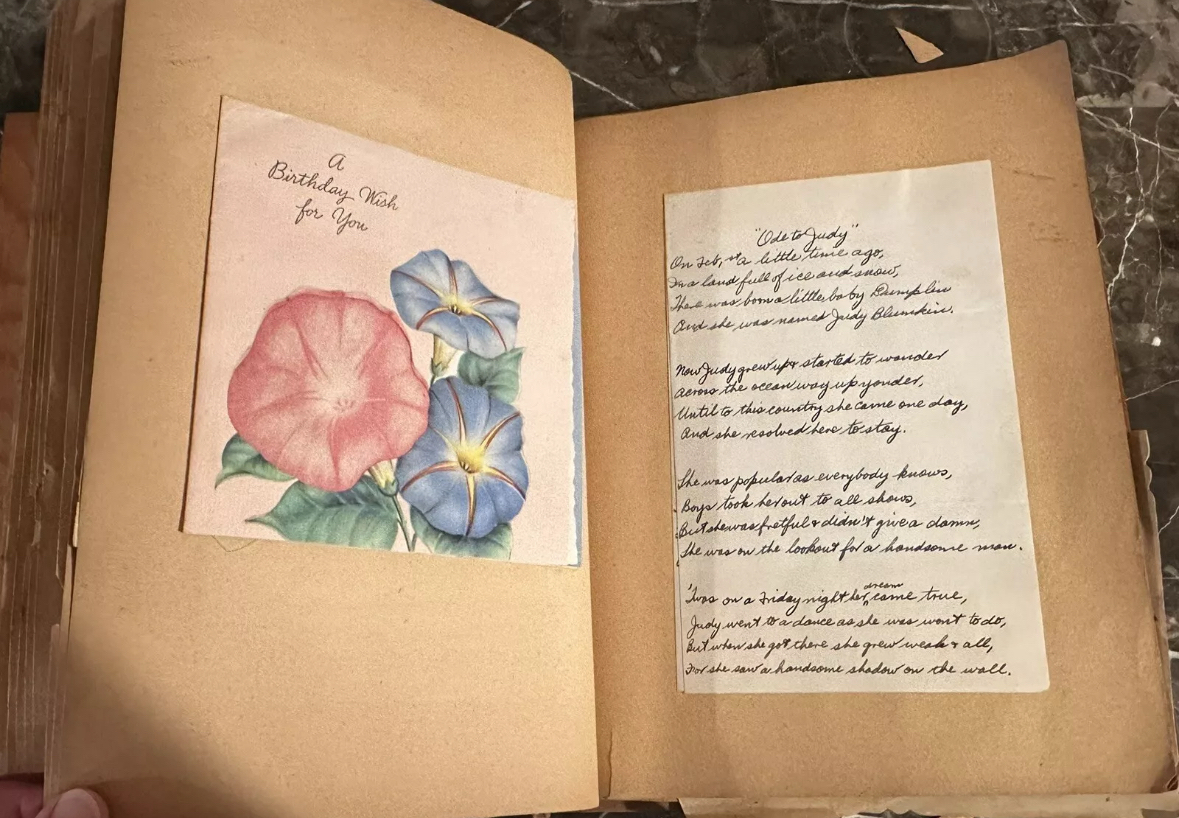 A
Birthday Wish
for You
"Ode to Judy"
On Feb, a little time ago,
In a land full of ice and snow,
There was born a little baby Dumplin
And she was named Judy Blumkin.
Now Judy grew up & started to wonder
Across the ocean way up yonder,
Until to this country she came one day,
And she resolved here to stay.
She was popular as everybody knows,
Boys took her out to all shows,
But she was fretful & didn't give a damn,
She was on the lookout for a handsome man.
'Twas on a Friday night her dream came true,
Judy went to a dance as she was wont to do,
But when she got there she grew weak & all,
For she saw a handsome shadow on the wall.